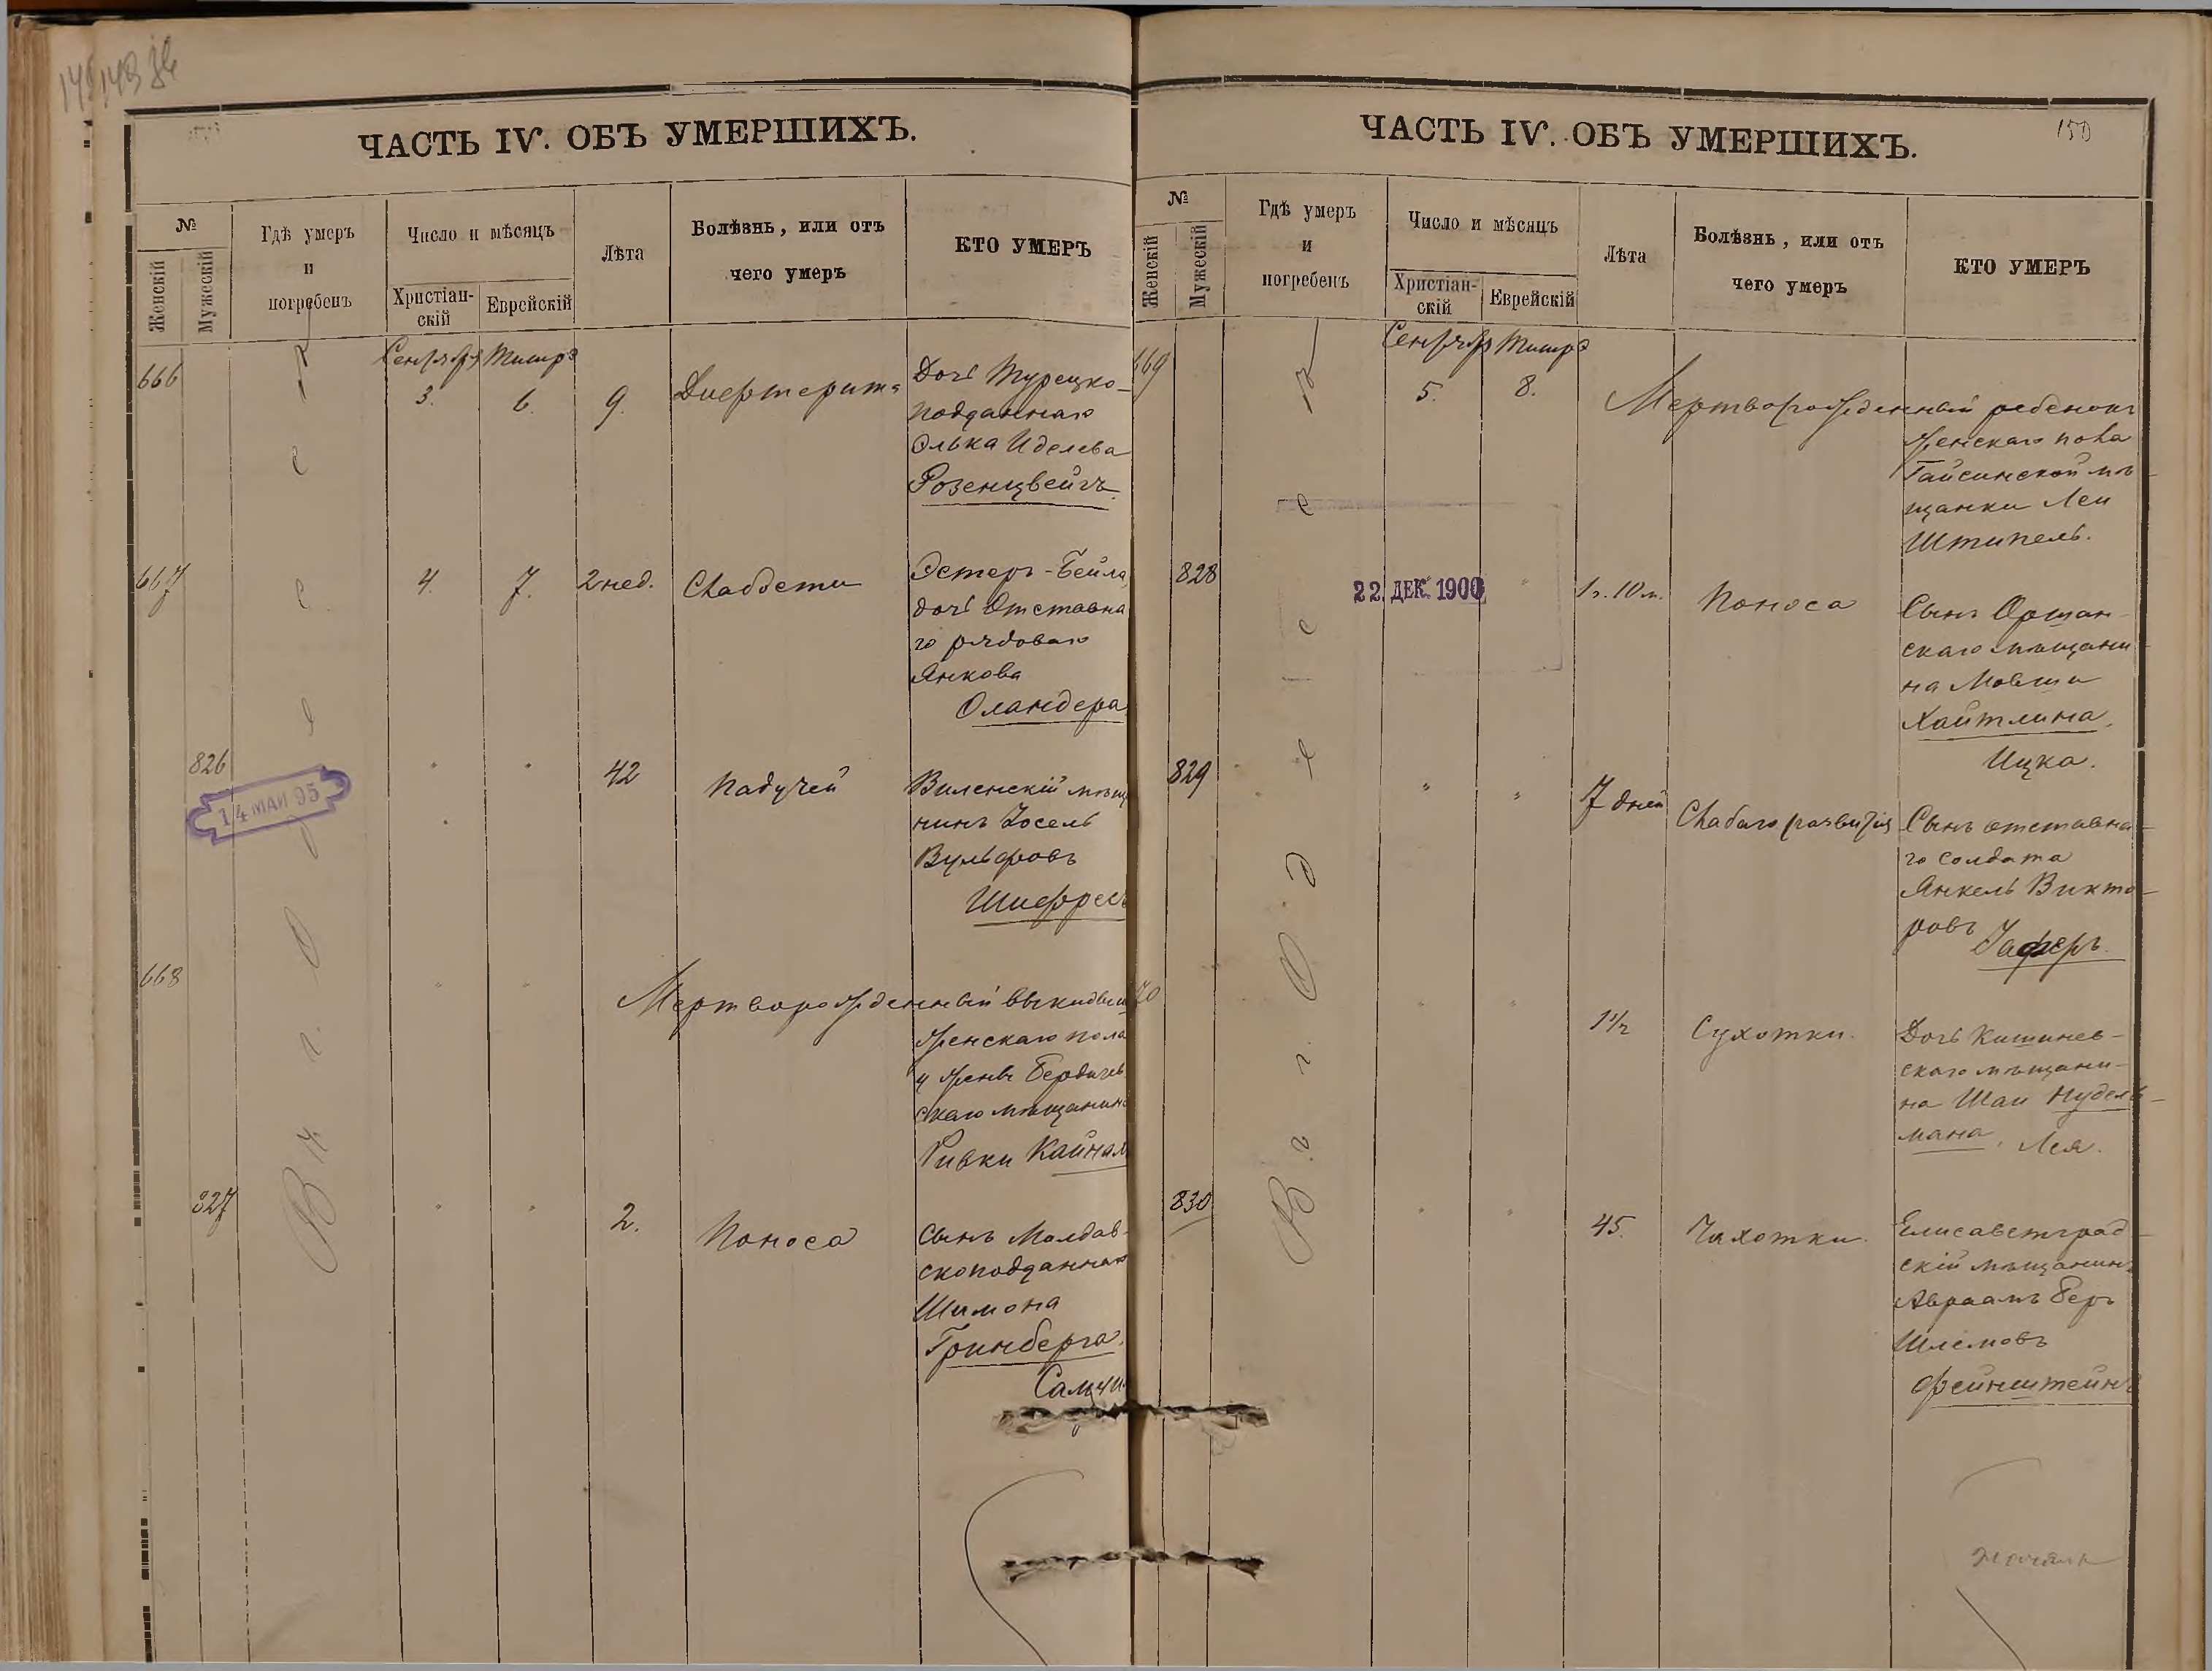 ЧАСТЬ IV. ОБЪ УМЕРШИХЪ.
№
Женскій
Мужескій
Гдѣ умеръ
и
погребенъ
Число и мѣсяцъ
Христіан-
скій
Еврейскій
Лѣта
Болѣзнь, или отъ
чего умеръ
КТО УМЕРЪ
Сентября Тишре
666
3.
6.
9.
Дифтерита
Дочь Турецко-
подданнаго
Элька Иделева
Розенцвейгъ.
667
4.
7.
2 нед.
Слабости
Эстеръ-Бейла
дочь Отставна
го рядоваго
Янкова
Оландера
826
"
"
42
Падучей
Виленскій мѣщ
нинъ Іосель
Вульфовъ
Шифресъ
14 МАИ 95
668
"
"
Мертворожденный выкидыш
женскаго пола
у жены Бердичев
скаго мѣщанина
Ривки Кайнам
827
"
"
2.
Поноса
Сынъ Молдав-
скоподданнаго
Шимона
Гринберга.
Въ г. Одессѣ
ЧАСТЬ IV. ОБЪ УМЕРШИХЪ.
150
№
Женскій
Мужескій
Гдѣ умеръ
и
погребенъ
Число и мѣсяцъ
Христіан-
скій
Еврейскій
Лѣта
Болѣзнь, или отъ
чего умеръ
КТО УМЕРЪ
Сентября Тишре
669
5.
8.
Мертворожденный ребенокъ
женскаго пола
Гайсинской мѣ
щанки Леи
Штипель.
828
22. ДЕК. 1900
"
1 г. 10 м.
Поноса
Сынъ Оршан-
скаго мѣщани-
на Мовши
Хайтлина.
Ицка.
829
"
"
7 дней
Слабаго развитія
Сынъ отставна-
го солдата
Янкель Викто-
ровъ
70
"
"
1 1/2
Сухотки.
Дочь Кишинев-
скаго мѣщани-
на Шаи Нудель-
мана, Лея.
830
"
"
45.
Чахотки.
Елисаветград-
скій мѣщанинъ
Авраамъ Беръ
Шлемовъ
Фейнштейнъ
Въ г. Одессѣ